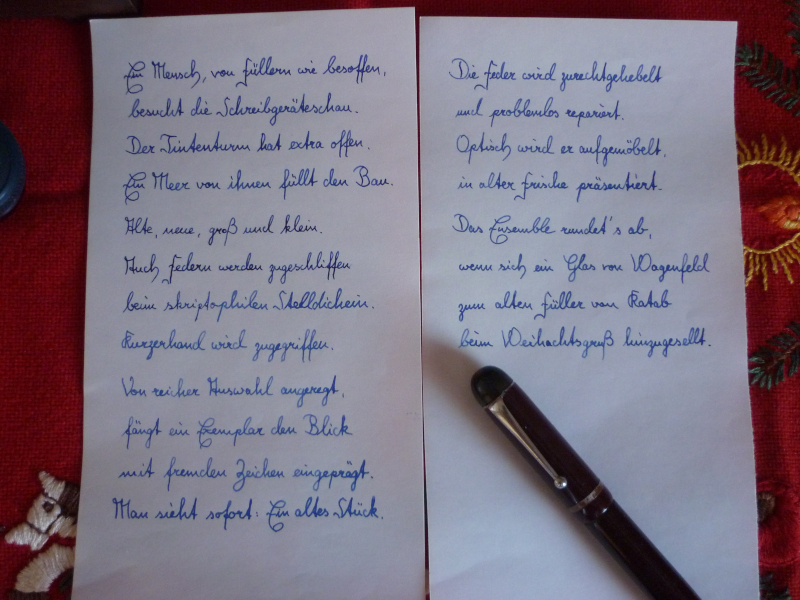 Ein Mensch, von Füllern wie besoffen,
besucht die Schreibgeräteschau.
Der Tintenturm hat extra offen.
Ein Meer von ihnen füllt den Bau.
Alte, neue, groß und klein.
Auch Federn werden zugeschliffen
beim skriptophilen Stelldichein.
Kurzerhand wird zugegriffen.
Von reicher Auswahl angeregt,
fängt ein Exemplar den Blick
mit fremden Zeichen eingeprägt.
Man sieht sofort: Ein altes Stück.
Die Feder wird zurechtgehebelt
und problemlos repariert.
Optisch wird er aufgemöbelt,
in alter Frische präsentiert.
Das Ensemble rundet's ab,
wenn sich ein Glas von Wagenfeld
zum alten Füller von Katab
beim Weihachtsgruß hinzugesellt.